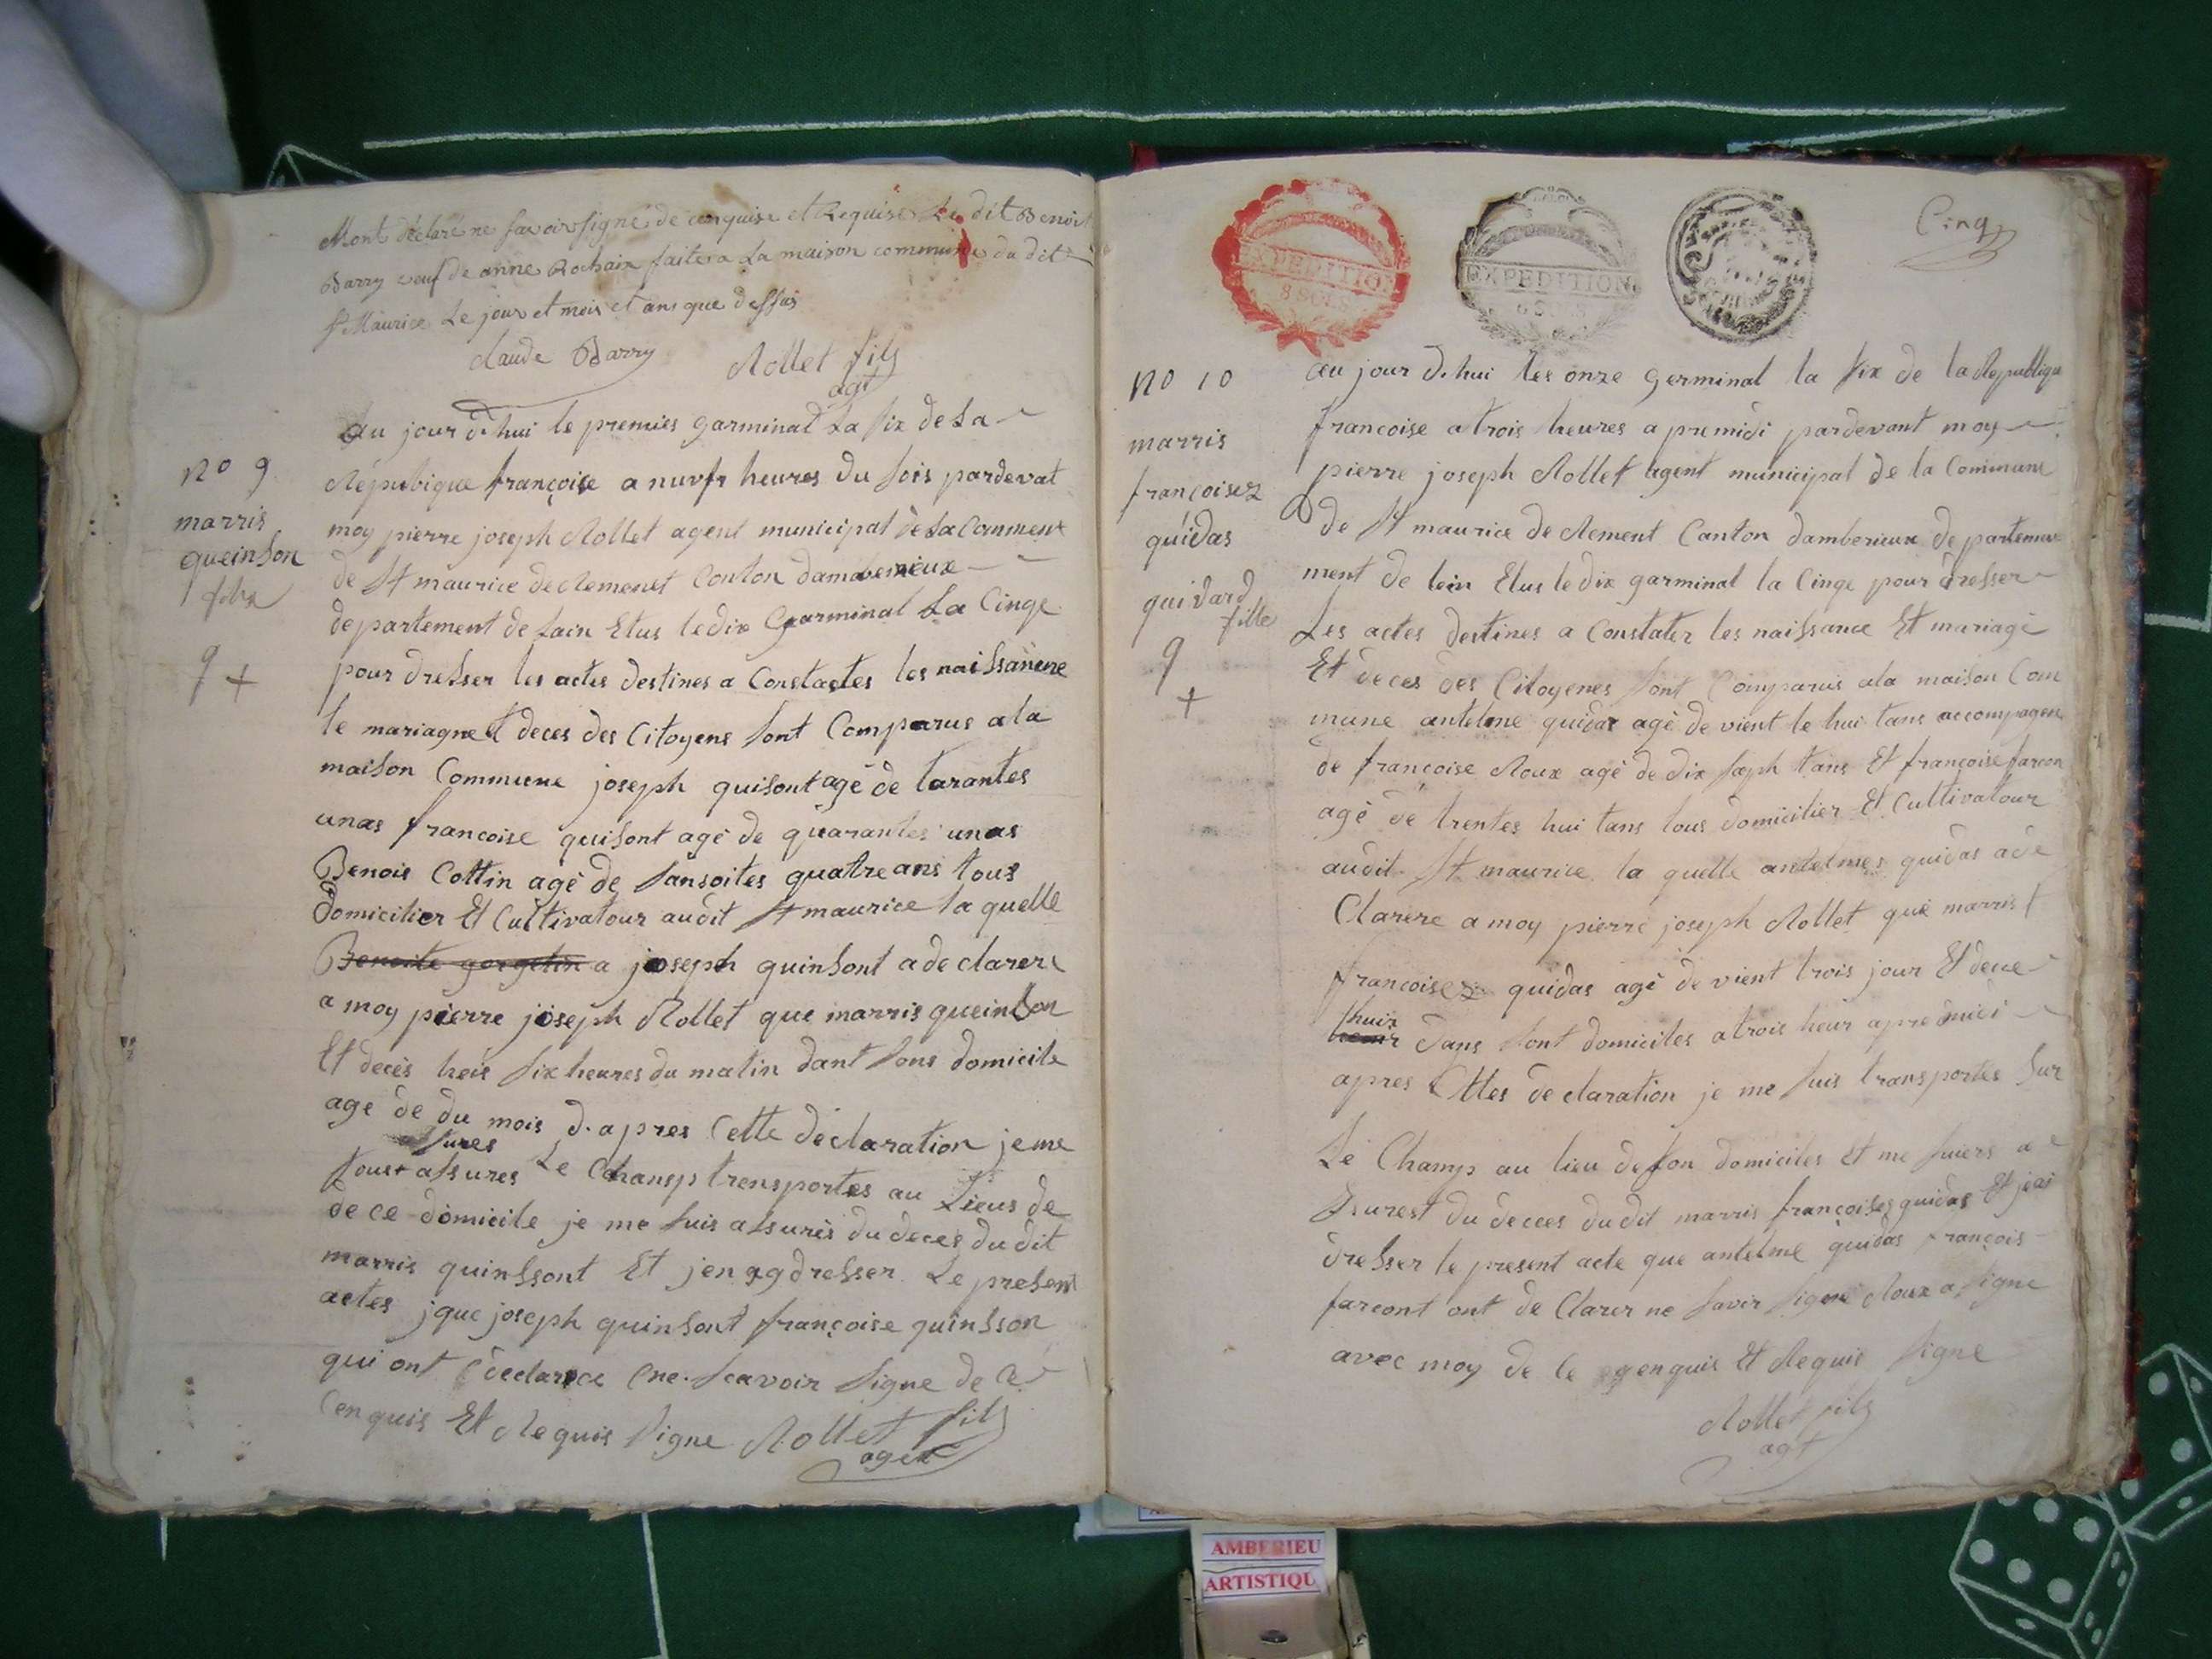 Mont déclaré ne savoir signé de enquise et Requise le dit Benoit
Barry veuf de anne Rochaix faite a la maison commune du dit
st Maurice le jour et mois et ans que dessus
claude Barry Rollet fils
agt
No 9
marris
queinson
9 +
au jour d.hui le premier garminal La six de La
Répubique françoise a nuvfs heures du sois pardevat
moy pierre joseph Rollet agent municipal de La Comment
de St maurice de Remenet Conton damberieux
departement de Lain Elus le dix Garminal La Cinge
pour dresser les actes destines a Constactes los naissanene
le mariagne et deces des Citoyens sont Comparus a la
maison Commune joseph quisont agé de tarantes
unas francoise quisont agé de quarantes unas
Benois Cottin agé de sansoites quatre ans tous
domicilier Et Cultivatour audit St maurice la quelle
Benoite gorgetin a joseph quinsont a de clarere
a moy pierre joseph Rollet que marris queinson
Et deces heis six heures du matin dant sons domicile
age de du mois d.apres Cette déclaration je me
sures
tous+ assures Le Champs trensportes au Lieus de
de ce domicile je me suis assurés du deces du dit
marris quinssont Et jen ag dresser Le present
actes jque joseph quinsont françoise quinsson
qui ont declarce Cne. scavoir signe de Ce
Cenquis Et Requis signe Rollet fils
agen
Cinq
EXPEDITION
8 SOLS
EXPEDITION
No 10
marris
françoisez
quidas
quidard
fille
9
+
au jour d.hui les onze germinal la six de la Republiqu
francoise a trois heures a premidi pardevant moy
pierre joseph Rollet agent municipal de la Commune
de St maurice de Rement Canton damberieux departemene
ment de loin Elus le dix garminal la Cinge pour dresser
Les actes destines a Constater les naissance Et mariage
Et deces des Citoyenes sont Comparus a la maison Com
mune antelme quidas agé de vient le hui tans accompagene
de francoise Roux agé de dix saeph tans Et françoise farcon
agé de trentes hui tans tous domicilier Et Cultivatour
audit St maurice la quelle antelmes quidas a de
Clarere a moy pierre joseph Rollet que marris
francoisez quidas agé de vient trois jour Et dece
thuix
dans sont domiciles a trois heur apre midi
apres Cttes declaration je me suis transportes sur
Le Champ au lieu de son domiciles Et me suiers a
ssurest du decces dudit marris françoises quidas Et jeai
dresser le present acte que antelme quidas françois
farcont ont de Clarer ne savir signe Roux a signe
avec moy de le genquis Et Requis signe
Rollet fils
agt
AMBERIEU
ARTISTIQU